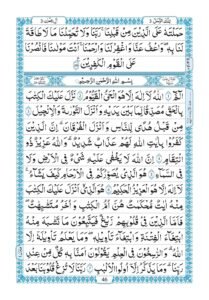 تِلْكَ الرُّسُلُ ٣
اٰل عمرٰن ٣
حَمَلْتَهٗ عَلَى الَّذِيْنَ مِنْ قَبْلِنَا ۚ رَبَّنَا وَلَا تُحَمِّلْنَا مَا لَا طَاقَةَ
لَنَا بِهٖ ۚ وَاعْفُ عَنَّا ۥ وَاغْفِرْ لَنَا ۥ وَارْحَمْنَا ۥ اَنْتَ مَوْلٰىنَا فَانْصُرْنَا
عَلَى الْقَوْمِ الْكٰفِرِيْنَ
بِسْمِ اللّٰهِ الرَّحْمٰنِ الرَّحِيْمِ
الٓمّٓ اللّٰهُ لَاۤ اِلٰهَ اِلَّا هُوَ الْحَيُّ الْقَيُّوْمُ نَزَّلَ عَلَيْكَ الْكِتٰبَ
بِالْحَقِّ مُصَدِّقًا لِّمَا بَيْنَ يَدَيْهِ وَاَنْزَلَ التَّوْرٰىةَ وَالْاِنْجِيْلَ
مِنْ قَبْلُ هُدًى لِّلنَّاسِ وَاَنْزَلَ الْفُرْقَانَ اِنَّ الَّذِيْنَ
كَفَرُوْا بِاٰيٰتِ اللّٰهِ لَهُمْ عَذَابٌ شَدِيْدٌ وَاللّٰهُ عَزِيْزٌ ذُو
انْتِقَامٍ اِنَّ اللّٰهَ لَا يَخْفٰى عَلَيْهِ شَيْءٌ فِي الْاَرْضِ وَلَا
فِي السَّمَآءِ هُوَ الَّذِيْ يُصَوِّرُكُمْ فِي الْاَرْحَامِ كَيْفَ يَشَآءُ
لَاۤ اِلٰهَ اِلَّا هُوَ الْعَزِيْزُ الْحَكِيْمُ هُوَ الَّذِيْۤ اَنْزَلَ عَلَيْكَ الْكِتٰبَ
مِنْهُ اٰيٰتٌ مُّحْكَمٰتٌ هُنَّ اُمُّ الْكِتٰبِ وَاُخَرُ مُتَشٰبِهٰتٌ
فَاَمَّا الَّذِيْنَ فِيْ قُلُوْبِهِمْ زَيْغٌ فَيَتَّبِعُوْنَ مَا تَشَابَهَ مِنْهُ
ابْتِغَآءَ الْفِتْنَةِ وَابْتِغَآءَ تَاْوِيْلِهٖ وَمَا يَعْلَمُ تَاْوِيْلَهٗۤ اِلَّا
اللّٰهُ وَالرّٰسِخُوْنَ فِي الْعِلْمِ يَقُوْلُوْنَ اٰمَنَّا بِهٖ كُلٌّ مِّنْ عِنْدِ
رَبِّنَا وَمَا يَذَّكَّرُ اِلَّاۤ اُولُوا الْاَلْبَابِ رَبَّنَا لَا تُزِغْ قُلُوْبَنَا بَعْدَ
46